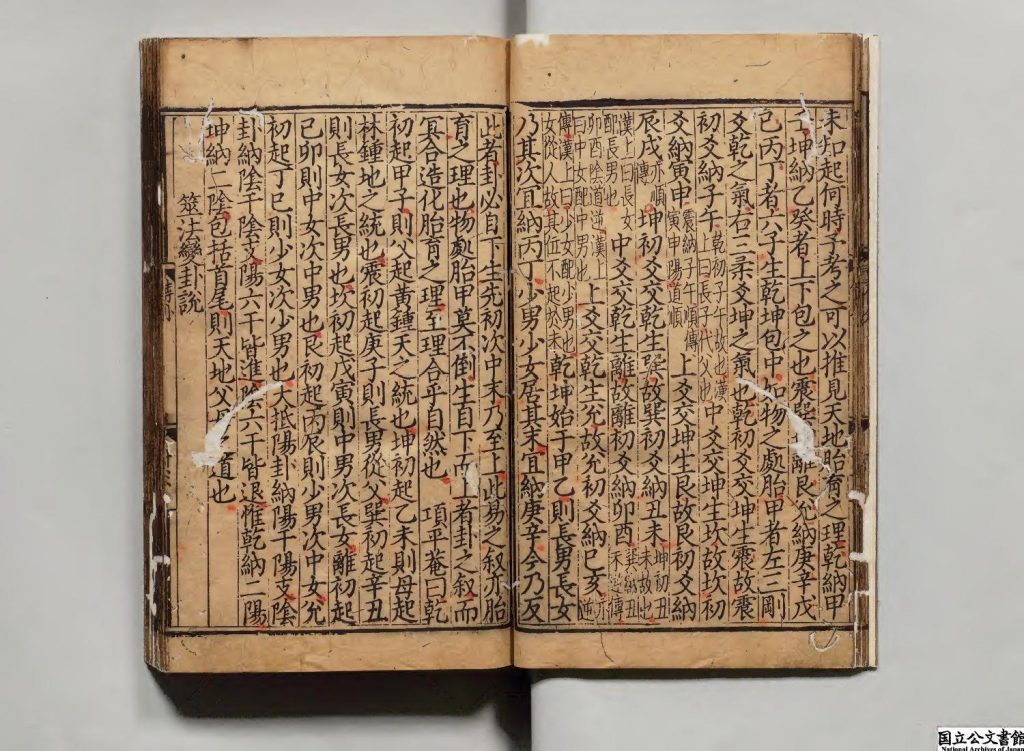 未知起何時予考之可以推見天地胎育之理乾納甲
壬坤納乙癸者上下包之也震巽坎離艮兌納庚辛戊
己丙丁者六子生乾坤包中如物之處胎甲者左三剛
爻乾之氣右三柔爻坤之氣也乾初爻交坤生震故震
初爻納子午乾初子午故也漢上曰長子代父也中爻交坤生坎故坎初
爻納寅申震納子午順傳寅申陽道順上爻交坤生艮故艮初爻納
辰戌亦順傳坤初爻交乾生巽故巽初爻納丑未坤初丑未故也
漢上曰長女配長男也中爻交乾生離故離初爻納卯酉巽納丑未逆傳
卯酉陰道逆漢上曰中女配中男也上爻交乾生兌故兌初爻納巳亥亦逆
傳漢上曰少女配少男也女從人故其位不起於未乾坤始于甲乙則長男長女
乃其次宜納丙丁少男少女居其末宜納庚辛今乃反
此者卦必自下生先初次中末乃至上此易之叙亦胎
育之理也物處胎甲莫不倒生自下而上者卦之叙而
冥合造化胎育之理至理合乎自然也 項平菴曰乾
初起甲子則父起黃鍾天之統也坤初起乙未則母起
林鍾地之統也震初起庚子則長男從父巽初起辛丑
則長女次長男也坎初起戊寅則中男次長女離初起
己卯則中女次中男也艮初起丙辰則少男次中女兌
初起丁巳則少女次少男也大抵陽卦納陽干陽支陰
卦納陰干陰支陽六干皆進陰六干皆退惟乾納二陽
坤納二陰包括首尾則天地父母之道也
筮法變卦說
国立公文書館
National Archives of Japan